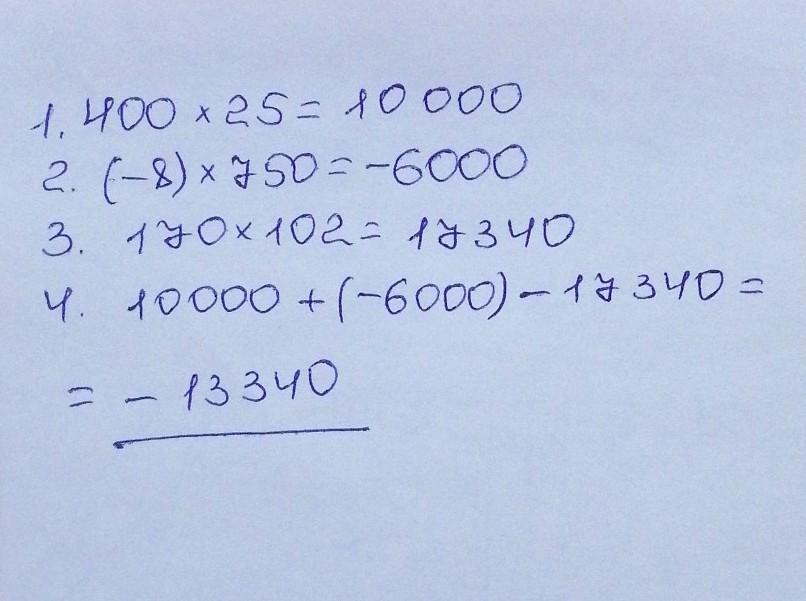 1. 400 × 25 = 10 000
2. (-8) × 750 = -6000
3. 170 × 102 = 17340
4. 10000 + (-6000) - 17340 =
= - 13340